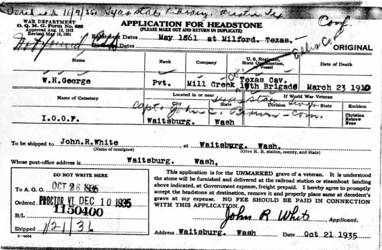 WAR DEPARTMENT
O. Q. M. G. Form No. 623
APPLICATION FOR HEADSTONE
(PLEASE MAKE OUT AND RETURN IN DUPLICATE)
Dates May 1861 at Milford, Texas.
ORIGINAL
Name
Rank
Company
Date of Death
W.H.George
Pvt.
Mill Creek
Texas Cav.
19th Brigade
March 23 1910
Name of Cemetery
Located in or near
If World War Veteran
I.O.O.F.
Waitsburg. Wash
To be shipped to John.R.White at Waitsburg. Wash.
(Name of consignee)
Whose post-office address is Waitsburg. Wash,
DO NOT WRITE HERE
To A.G.O. OCT 26 1935
Ordered PROCTOR VT DEC 10 1935
B/L 1150400
Shipped 1/21/36
This application is for the UNMARKED grave of a veteran. It is understood
the stone will be furnished and delivered at the railroad station or steamboat landing
above indicated, at Government expense, freight prepaid. I hereby agree to promptly
accept the headstone at destination, remove it and properly place same at decedent's
grave at my expense. NO FEE SHOULD BE PAID IN CONNECTION
WITH THIS APPLICATION.
John R White Applicant.
Date Oct 21 1935